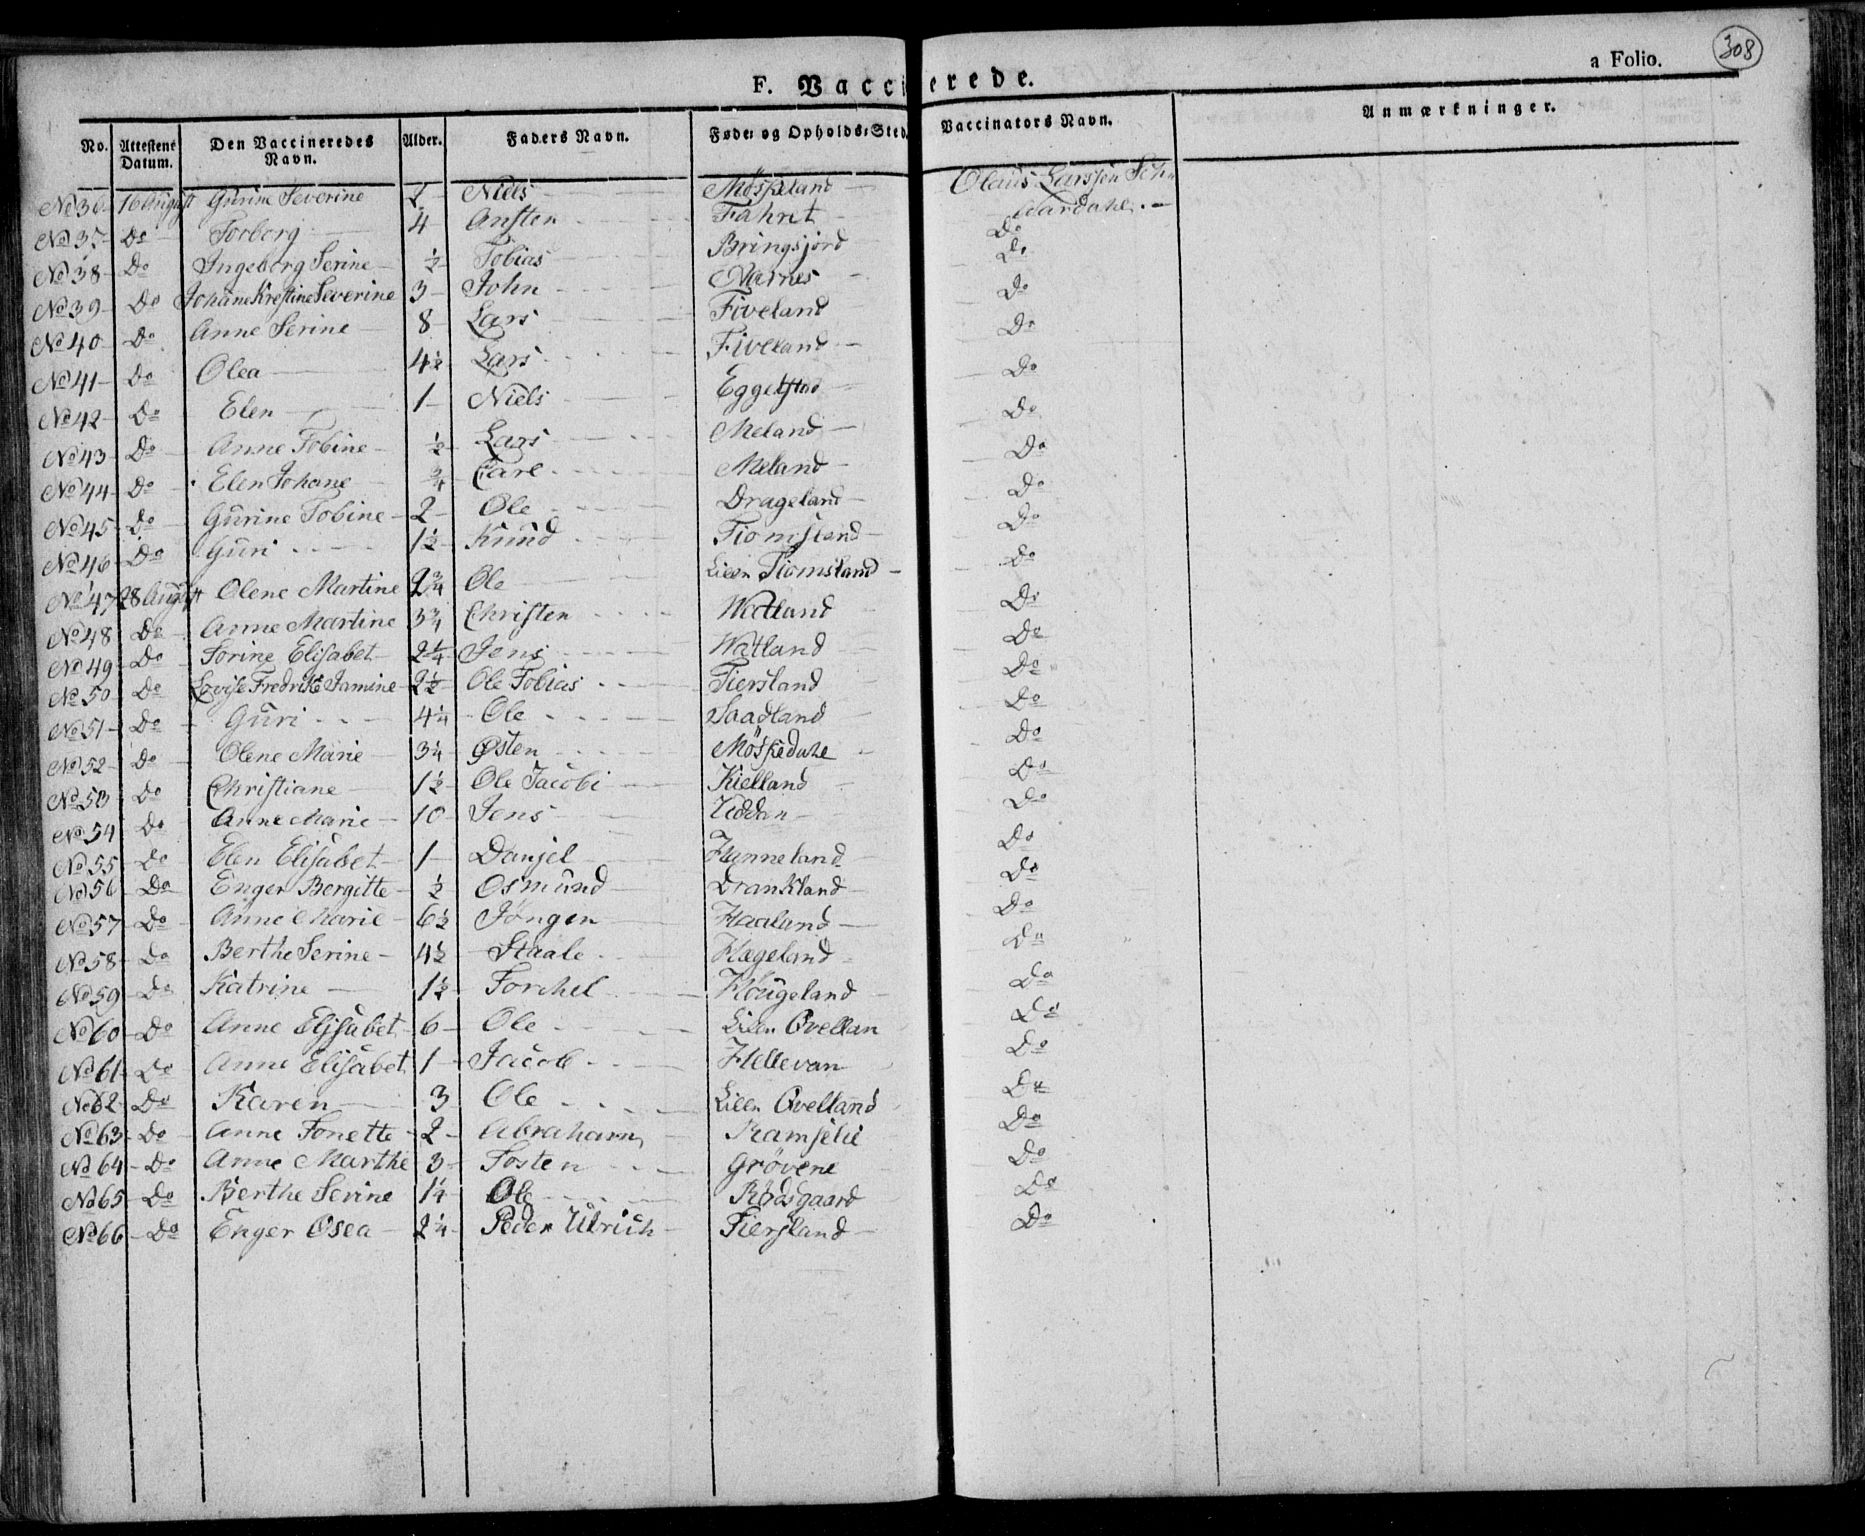 308
a Folio.
F. Vaccinerede.
No. Attestens Datum. Den Vaccineredes Navn. Alder. Faders Navn. Føde- og Opholds-Sted. Vaccinators Navn. Anmærkninger.
No 36 16 August Gurine Severine 2 Niels Møskeland Olaus Larssen
No 37 Do Torborg 4 Ansten Fahret Do
No 38 Do Ingeborg Serine ½ Tobias Bringsjord Do
No 39 Do Johane Krestine Severine 3 John Narnes Do
No 40 Do Anne Serine 8 Lars Fiveland Do
No 41 Do Olea 4½ Lars Fiveland Do
No 42 Do Elen 1 Niels Eggelstad Do
No 43 Do Anne Tobine ½ Lars Meland Do
No 44 Do Elen Johane ¾ Carl Meland Do
No 45 Do Gurine Tobine 2 Ole Drageland Do
No 46 Do Guri 1½ Knud Tiomsland Do
No 47 28 August Olene Martine 2¾ Ole Lille Tiomsland Do
No 48 Do Anne Martine 3¾ Christen Watland Do
No 49 Do Sorine Elisabet 2¼ Jens Watland Do
No 50 Do Lovise Fredrike Jamine 2½ Ole Tobias Tiersland Do
No 51 Do Guri 4¼ Ole Saadland Do
No 52 Do Olene Marie 3¼ Østen Møskedahl Do
No 53 Do Christiane 1½ Ole Jacobi Kielland Do
No 54 Do Anne Marie 10 Jens Uddan Do
No 55 Do Elen Elisabet 1 Danjel Hanneland Do
No 56 Do Enger Bergitte ½ Osmund Drankland Do
No 57 Do Anne Marie 6½ Jøngen Haaland Do
No 58 Do Berthe Serine 4½ Staale Hægeland Do
No 59 Do Katrine 1½ Torkel Høugeland Do
No 60 Do Anne Elisabet 6 Ole Lille Qvellan Do
No 61 Do Anne Elisabet 1 Jacob Hellevan Do
No 62 Do Karen 3 Ole Lille Qvelland Do
No 63 Do Anne Tonette 2 Abraham Ramslie Do
No 64 Do Anne Marthe 3 Tosten Grøvene Do
No 65 Do Berthe Serine 1¼ Ole Rødsgaard Do
No 66 Do Enger Osea 2¼ Peder Ulrich Fiersland Do